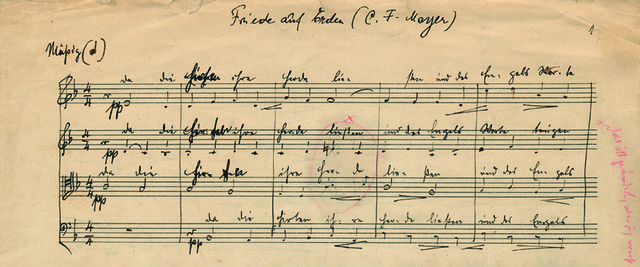 Friede auf Erden (C. F. Meyer)
1
Mäßig (d)
da die Hirten ihre Herde lie- ßen und des En- gels Wor- te
pp
da die Hirten ihre Herde ließen und des Engels Worte trugen
pp
da die Hirten ihre Her- de lie- ßen und des En- gels
pp
da die Hirten ih- re Her- de ließen und des Engels
pp